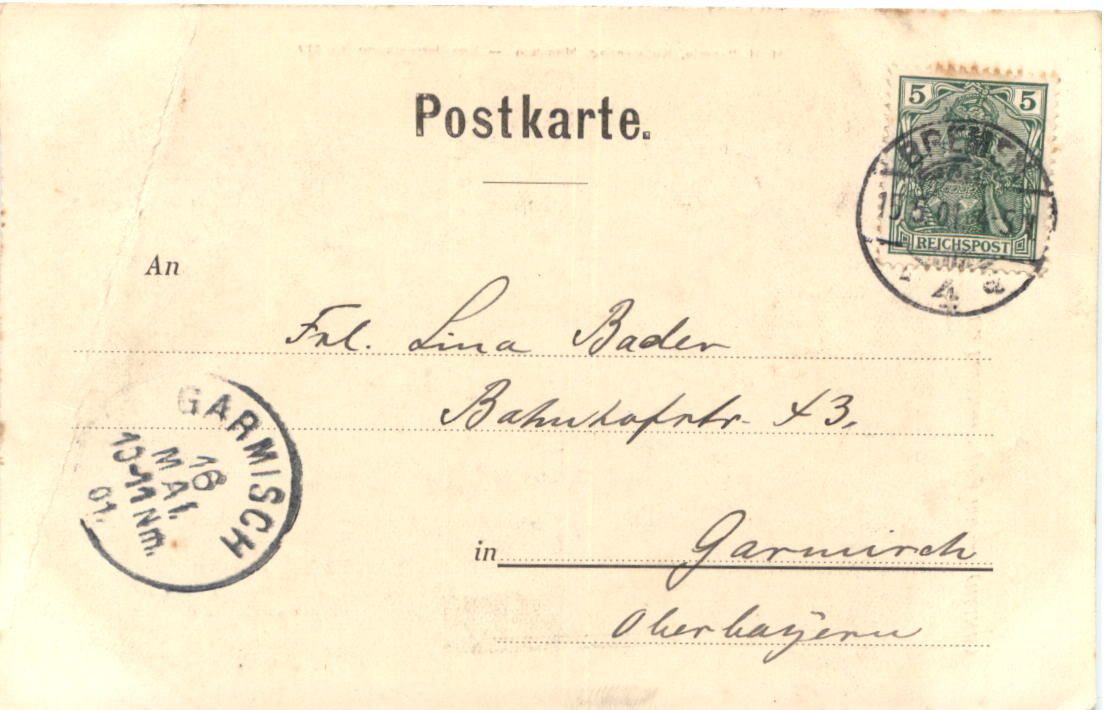 Postkarte.
5 5
REICHSPOST
BREMEN
5.01. 4-5N
4 a
An
Frl. Lina Bader
Bahnhofstr. 43.
GARMISCH
16
MAI.
10-11 Nm.
01.
in Garmisch
Oberbayern